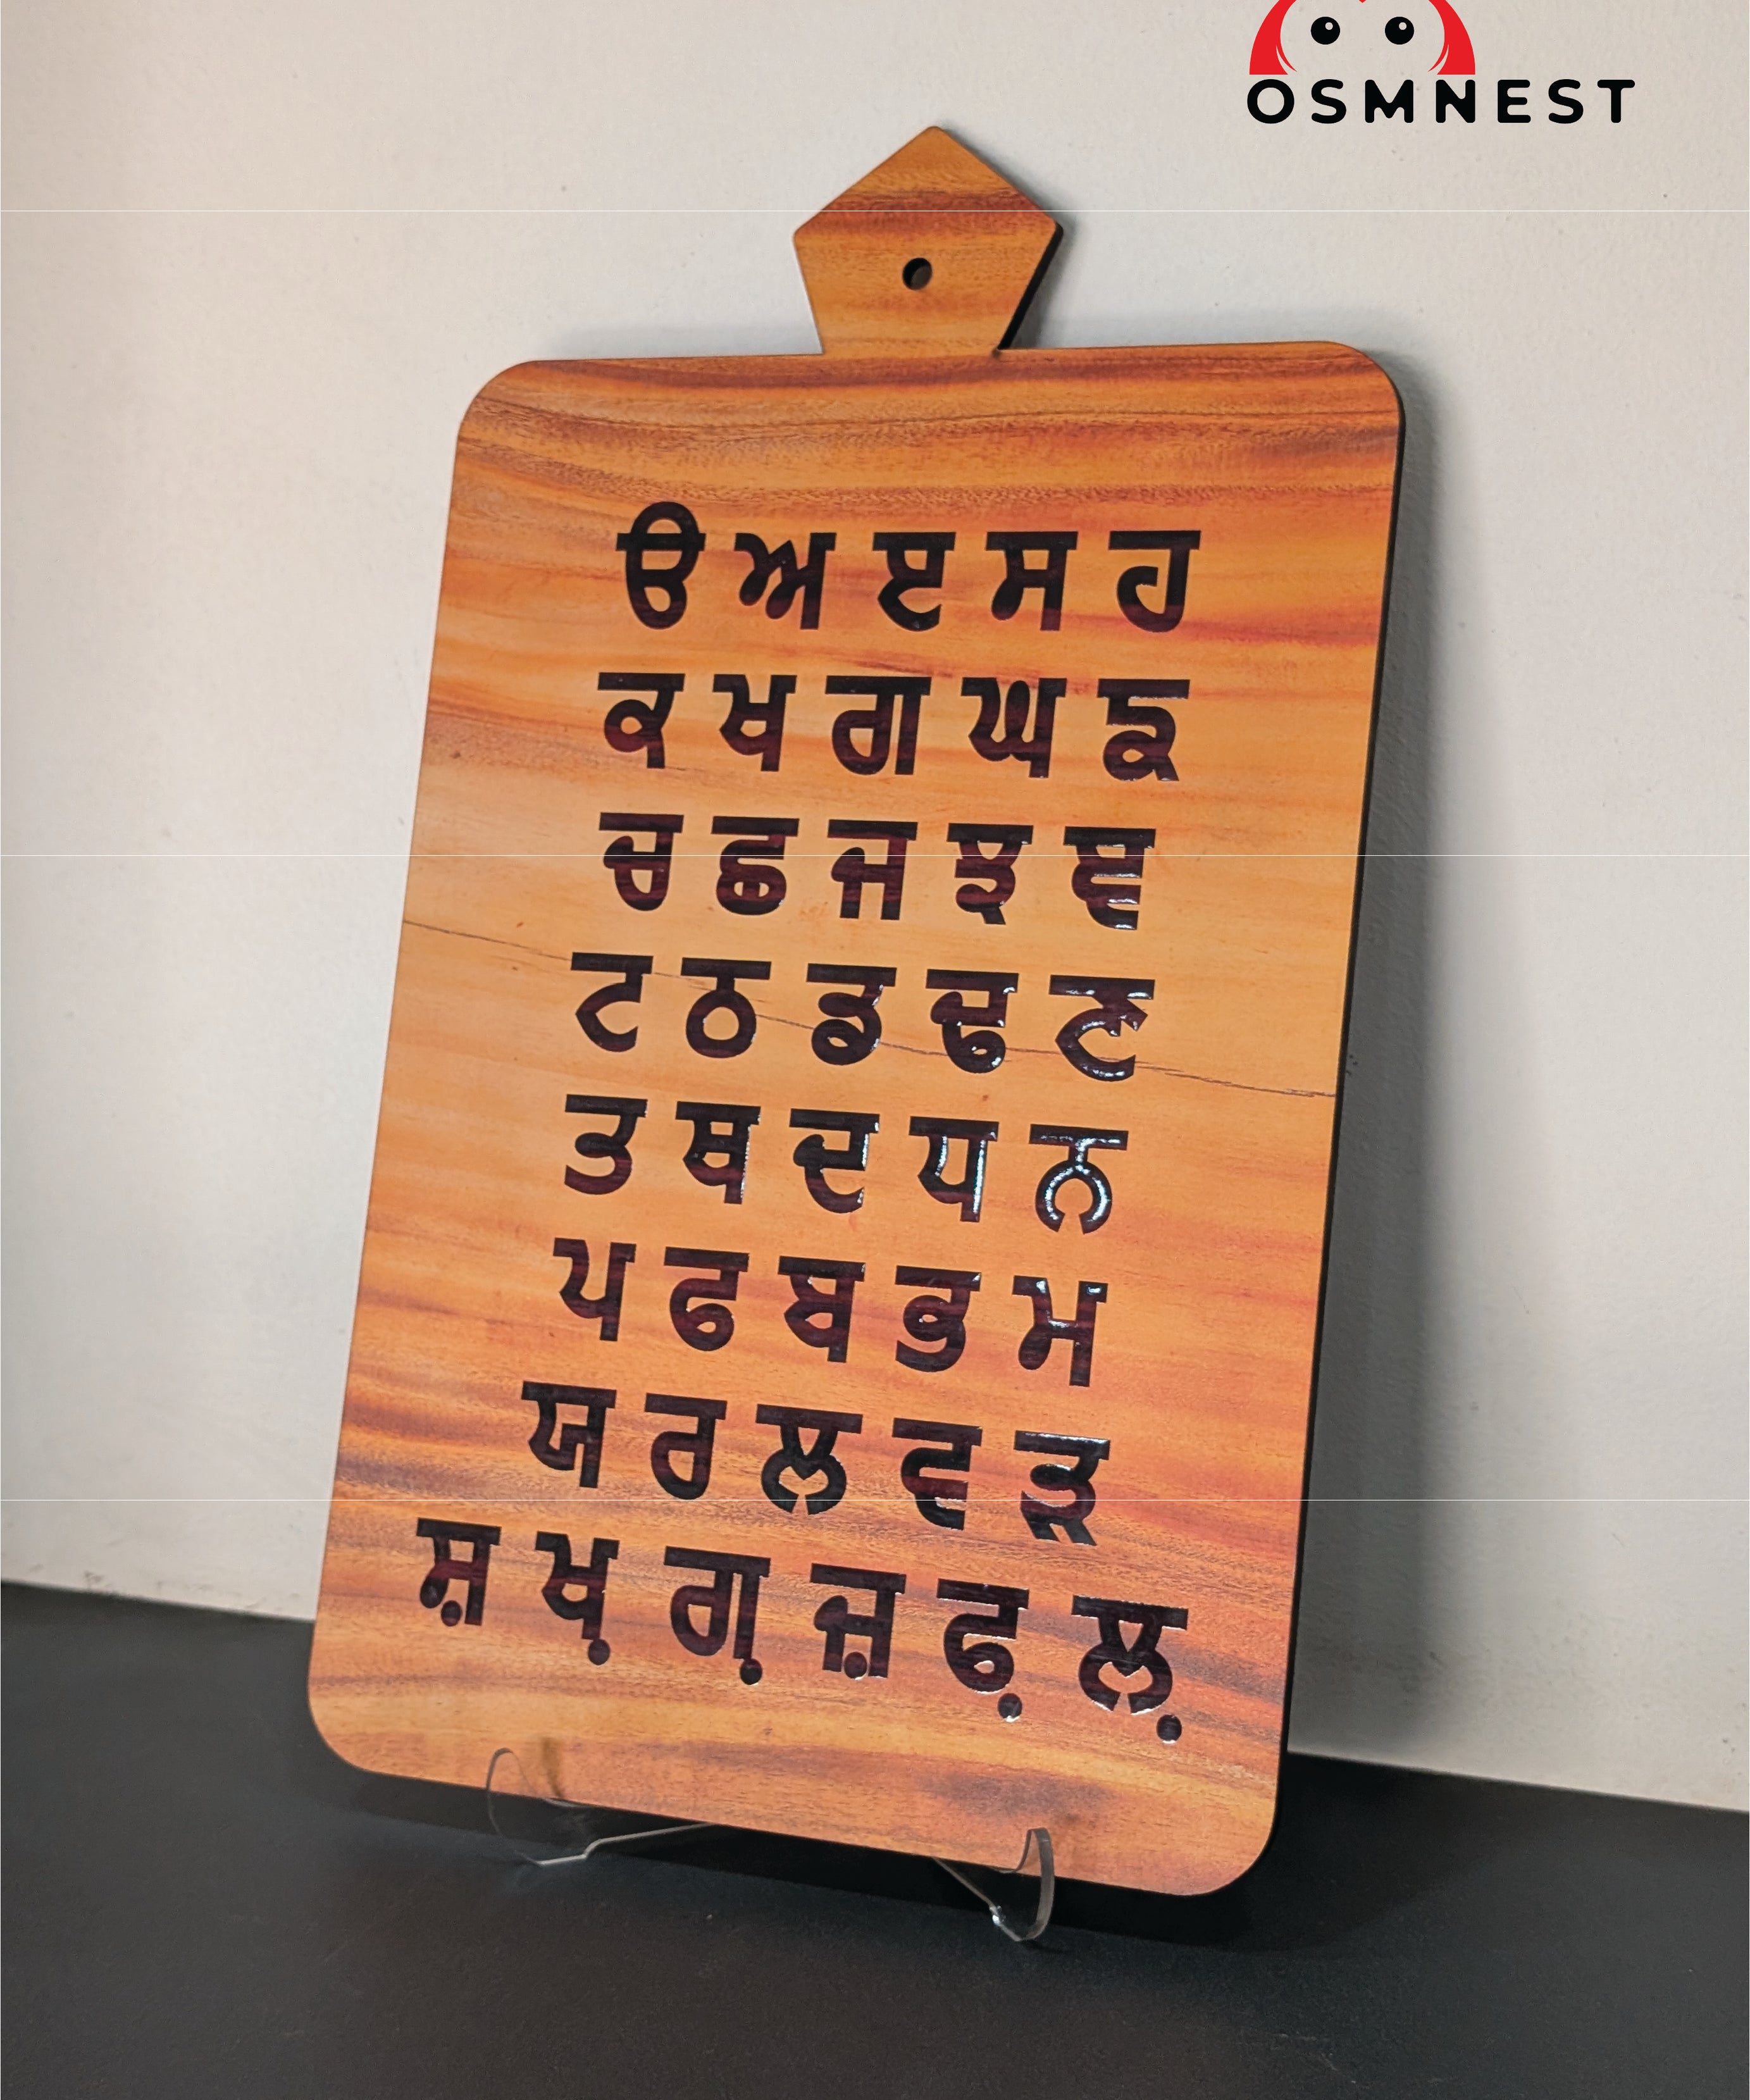 OSMNEST
ੳ ਅ ੲ ਸ ਹ
ਕ ਖ ਗ ਘ ਙ
ਚ ਛ ਜ ਝ ਞ
ਟ ਠ ਡ ਢ ਣ
ਤ ਥ ਦ ਧ ਨ
ਪ ਫ ਬ ਭ ਮ
ਯ ਰ ਲ ਵ ੜ
ਸ਼ ਖ਼ ਗ਼ ਜ਼ ਫ਼ ਲ਼